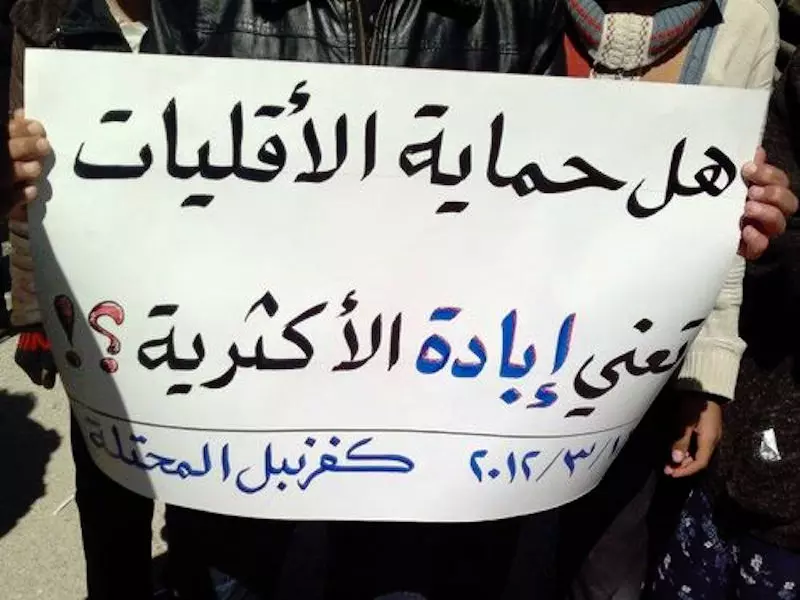 هل حماية الأقليات
تعني إبادة الأكثرية ؟!
كفرنبل المحتلة ٢٠١٢/٣/١